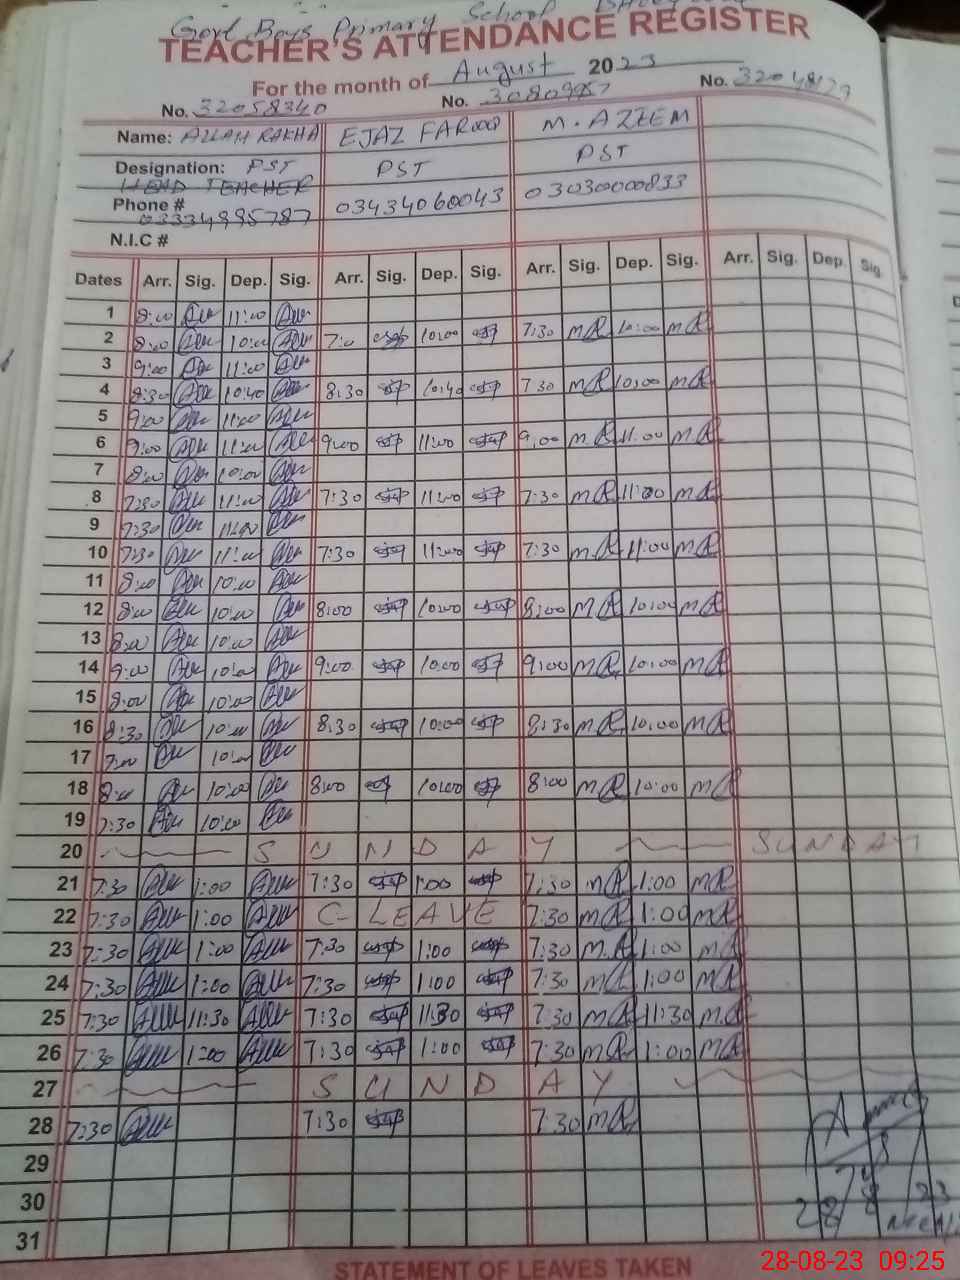 Govt Boys Primary School
TEACHER'S ATTENDANCE REGISTER
For the month of August 2023
No. 32058340 No. No.
Name: ALLAH RAKHA EJAZ FAROOQ M. AZEEM
Designation: PST PST PST
HEAD TEACHER
Phone # 03334995787 03434060043 03030000833
N.I.C #
Dates Arr. Sig. Dep. Sig. Arr. Sig. Dep. Sig. Arr. Sig. Dep. Sig. Arr. Sig. Dep. Sig.
1 8:00 11:00
2 8:00 10:00 7:0 10:00 7:30 MR 10:00 MR
3 9:00 11:00
4 8:30 10:40 8:30 10:40 7:30 MR 10:00 MR
5 9:00 11:00
6 9:00 11:00 9:00 11:00 9:00 MR 11:00 MR
7 8:00 10:00
8 7:30 11:00 7:30 11:00 7:30 MR 11:00 MR
9 7:30 11:00
10 7:30 11:00 7:30 11:00 7:30 MR 11:00 MR
11 8:00 10:00
12 8:00 10:00 8:00 10:00 8:00 MR 10:00 MR
13 8:00 10:00
14 9:00 10:00 9:00 10:00 9:00 MR 10:00 MR
15 8:00 10:00
16 8:30 10:00 8:30 10:00 8:30 MR 10:00 MR
17 10:00
18 8:00 10:00 8:00 10:00 8:00 MR 10:00 MR
19 7:30 10:00
20 SUNDAY SUNDAY
21 7:30 1:00 7:30 1:00 7:30 MR 1:00 MR
22 7:30 1:00 C-LEAVE 7:30 MR 1:00 MR
23 7:30 1:00 7:30 1:00 7:30 MR 1:00 MR
24 7:30 1:00 7:30 1:00 7:30 MR 1:00 MR
25 7:30 11:30 7:30 11:30 7:30 MR 11:30 MR
26 7:30 1:00 7:30 1:00 7:30 MR 1:00 MR
27 SUNDAY
28 7:30 7:30 7:30 MR
29
30
31
STATEMENT OF LEAVES TAKEN
28-08-23 09:25